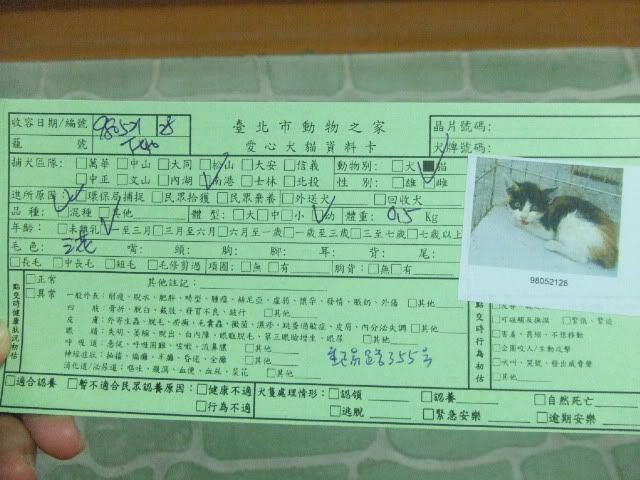 收容日期/編號 980521 28 臺北市動物之家 晶片號碼:
籠 號 愛心犬貓資料卡 犬牌號碼:
捕犬區隊: □萬華 □中山 □大同 □松山 □大安 □信義 動物別: □犬 ■貓
□中正 □文山 □內湖 □南港 □士林 □北投 性 別: □雄 □雌
進所原因 □環保局捕捉 □民眾拾獲 □民眾棄養 □外送犬 □回收犬
品 種: □混種 □其他 體 型: □大 □中 □小 □幼 體重: 0.5 Kg
年齡: □未離乳 □一至三月 □三月至六月 □六月至一歲 □一歲至三歲 □三至七歲 □七歲以上
毛 色: 三花 嘴: 頭: 胸: 腳: 耳: 背: 尾:
□長毛 □中長毛 □短毛 □毛修剪過 項圈: □無 □有 胸背: □無 □有
98052128
點交時健康狀況初估
□正常 其他註記:
□異常 一般外表: 削瘦、脫水、肥胖、畸型、腫瘤、赫尼亞、虛弱、懷孕、發情、哺奶、外傷 □其他
四 肢: 骨折、脫臼、截肢、發育不良、跛行 □其他
皮 膚: 外寄生蟲、脫毛、疥癬、毛囊蟲、黴菌、濕疹、跳蚤過敏症、皮屑、內分泌失調 □其他
眼 睛: 失明、萎縮、脫出、白內障、眼瞼脫毛、第三眼瞼增生、眼屎 □其他
呼 吸 道: 急促、呼吸困難、咳嗽、流鼻膿 □其他
神經症狀: 抽搐、癲癇、半癱、昏迷、全癱 □其他
消化道/泌尿道: 嘔吐、腹瀉、血便、血尿、尿石 □其他
355号
點交時行為初估
□可碰觸及撫摸 □緊張、緊迫
□害羞、畏縮、不想移動
□企圖咬人/主動攻擊
□吠叫、哭號、發出威脅聲
□其他
□適合認養 □暫不適合民眾認養原因: □健康不適 犬隻處理情形: □認領 □認養 □自然死亡
□行為不適 □逃脫 □緊急安樂 □逾期安樂